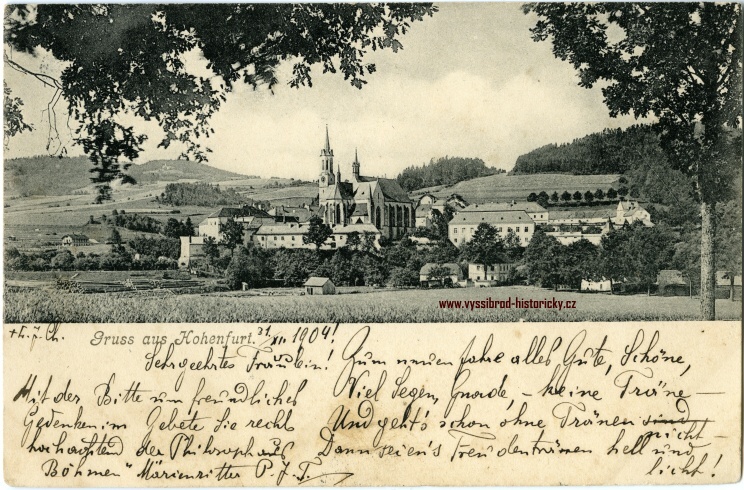 www.vyssibrod-historicky.cz
Gruss aus Hohenfurt. 31/XII 1904!
Sehrgeehrtes Fräulein!
Mit der Bitte um freundliches
Gedenken im Gebete Sie recht
hochachtend der Philosoph aus
Böhmen" Marienritter P. J. T.
Zum neuen Jahre alles Gute, Schöne,
Viel Segen, Gnade, - keine Träne -
Und geht's schon ohne Tränen nicht -
Dann seien's Freudentränen hell und
licht!